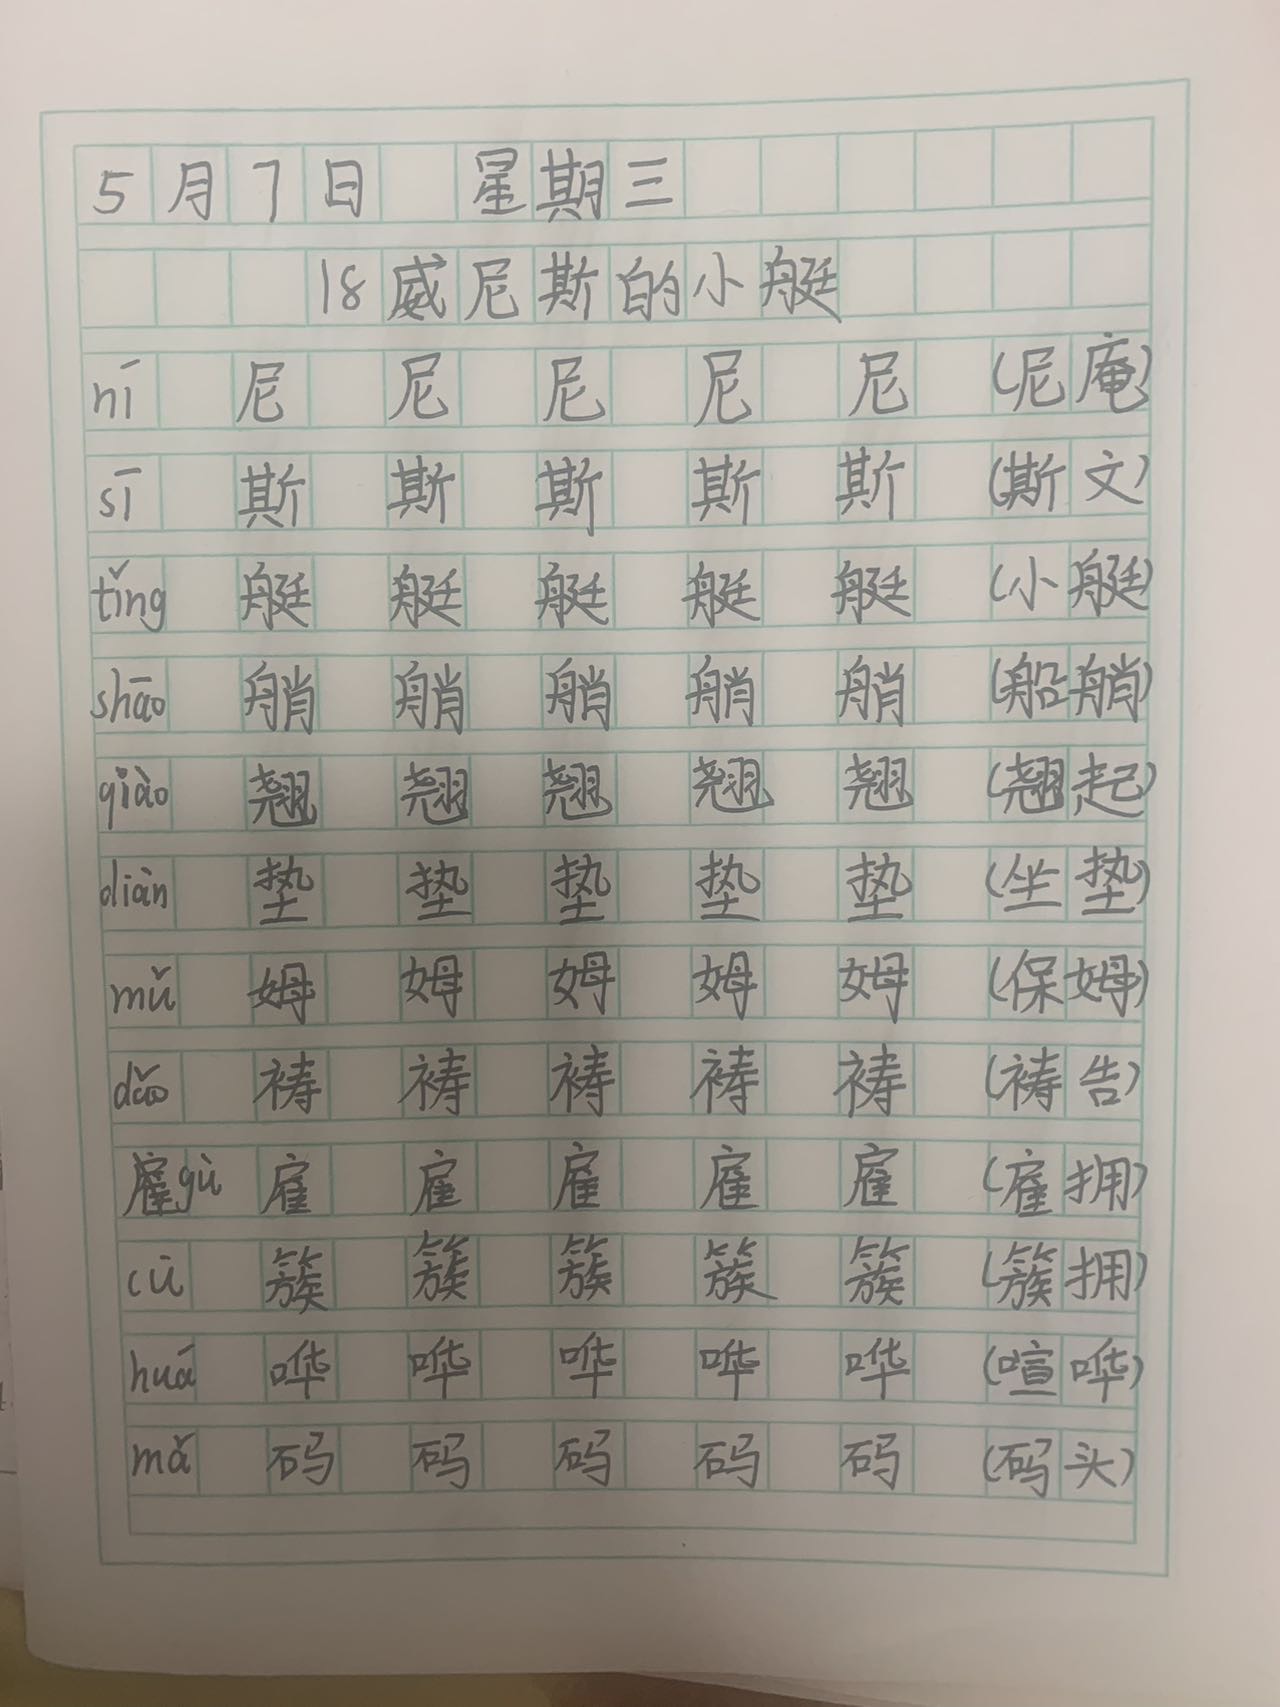 5月7日 星期三
18威尼斯的小艇
ní 尼 尼 尼 尼 尼 (尼庵)
sī 斯 斯 斯 斯 斯 (斯文)
tǐng 艇 艇 艇 艇 艇 (小艇)
shāo 艄 艄 艄 艄 艄 (船艄)
qiào 翘 翘 翘 翘 翘 (翘起)
diàn 垫 垫 垫 垫 垫 (坐垫)
mǔ 姆 姆 姆 姆 姆 (保姆)
dǎo 祷 祷 祷 祷 祷 (祷告)
雇gù 雇 雇 雇 雇 雇 (雇拥)
cù 簇 簇 簇 簇 簇 (簇拥)
huá 哗 哗 哗 哗 哗 (喧哗)
mǎ 码 码 码 码 码 (码头)